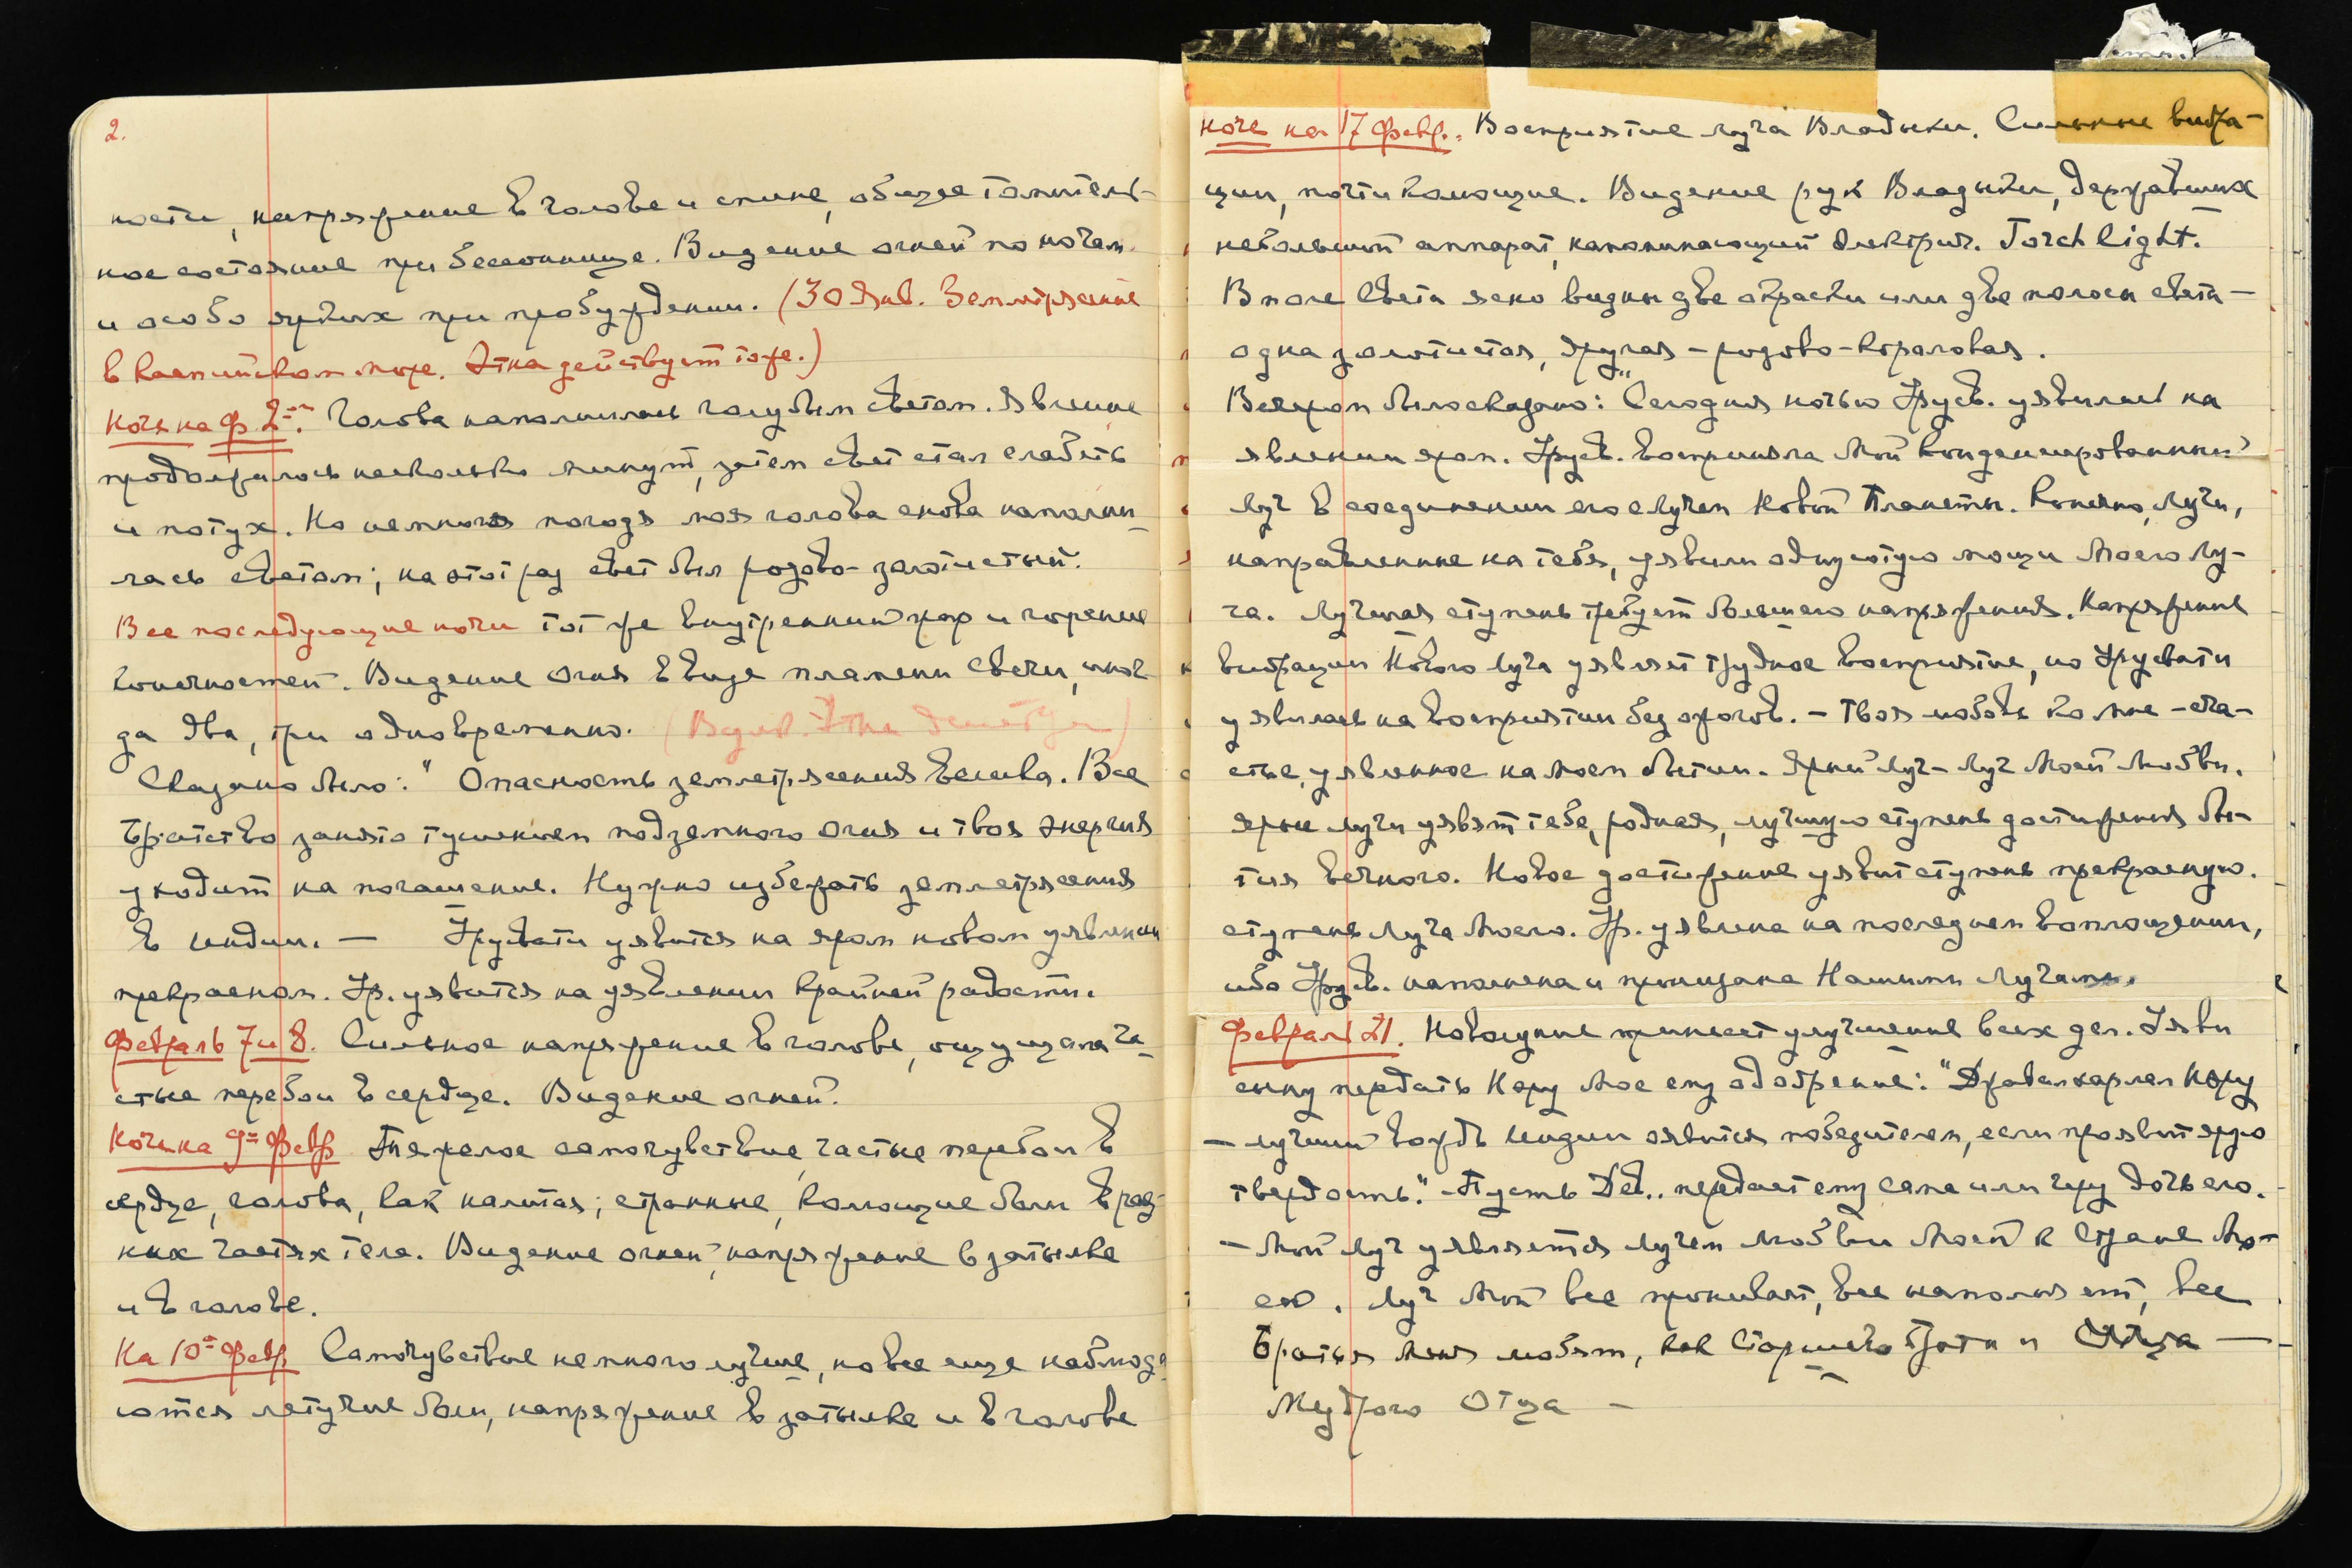 2.
ности, напряжение в голове и спине, общее томитель-
ное состояние при бессоннице. Видение огней по ночам
и особо ярких при пробуждении. (30 Янв. Землетрясение
в Каспийском море. Этна действует тоже.)
Ночь на Ф. 2ое. Голова наполнилась голубым светом. Явление
продолжалось несколько минут, затем свет стал слабеть
и потух. Но немного погодя моя голова снова наполни-
лась светом; на этот раз свет был розово-золотистый.
Все последующие ночи тот же внутренний жар и горение
конечностей. Видение огня в виде пламени свечи, иног-
да два, три одновременно. (Вулк. Этна действ.)
Сказано было: "Опасность землетрясения велика. Все
Братство занято тушением подземного огня и твоя энергия
уходит на погашение. Нужно избежать землетрясения
в Индии. — Урусвати уявится на яром новом уявлении
прекрасном. Ур. уявится на уявлении крайней радости.
Февраль 7 и 8. Сильное напряжение в голове, ощущала ча-
стые перебои в сердце. Видение огней.
Ночь на 9ое Февр Тяжелое самочувствие, частые перебои в
сердце, голова, как налитая; странные, колющие боли в раз-
ных частях тела. Видение огней, напряжение в затылке
и в голове.
На 10ое Февр Самочувствие немного лучше, но все еще наблюда-
ются летучие боли, напряжение в затылке и в голове
Ночь на 17 Февр. Восприятие луча Владыки. Сильные вибра-
ции, почти колющие. Видение рук Владыки, державших
небольшой аппарат, напоминающий электрич. Torch light.
В поле света ясно видны две окраски или две полосы света —
одна золотистая, другая — розово-коралловая.
Вечером было сказано: "Сегодня ночью Урусв. уявилась на
явлении яром. Урусв. восприняла Мой конденсированный
луч в соединении его с лучем Новой Планеты. Конечно, лучи,
направленные на тебя, уявили одну сотую мощи Моего Лу-
ча. Лучшая ступень требует большего напряжения. Напряжение
вибрации Нового Луча уявляет трудное восприятие, но Урусвати
уявилась на восприятии без ожогов. — Твоя любовь ко мне — сча-
стье, уявленное на моем бытии. Ярый луч — луч Моей Любви.
Ярые лучи уявят тебе, родная, лучшую ступень достижения бы-
тия вечного. Новое достижение уявит ступень прекрасную.
ступень Луча Моего. Ур. уявлена на последнем воплощении,
ибо Урусв. наполнена и пронизана Нашими Лучами.
Февраль 21. Новолуние принесет улучшение всех дел. Уяви
сыну передать Неру Мое ему одобрение: "Джавахарлал Неру
— лучший вождь Индии явится победителем, если проявит ярую
твердость." — Пусть Дев.. передаст ему сама или чрез дочь его.
— Мой луч уявляется лучем любви Моей к Стране Мо-
ею. Луч Мой все проникает, все наполняет, все
Братья Меня любят, как Старшего Брата и Отца —
Мудрого Отца —